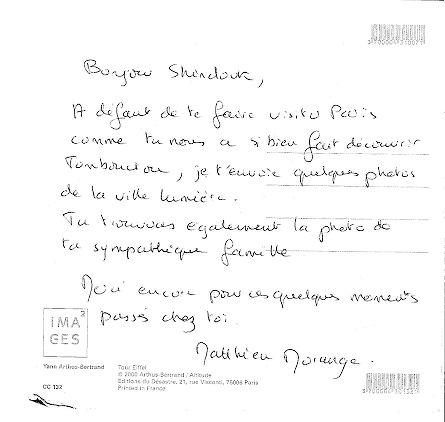 Bonjour Shindouk,
A défaut de te faire visiter Paris
comme tu nous a si bien fait découvrir
Tombouctou, je t'envoie quelques photos
de la ville lumière.
Tu trouveras également la photo de
ta sympathique famille
Merci encore pour ces quelques moments
passés chez toi.
Matthieu Morange.
IMA
GES
2
Yann Arthus-Bertrand
CC 132
Tour Eiffel
© 2000 Arthus-Bertrand / Altitude
Editions du Désastre, 21, rue Visconti, 75006 Paris
Printed in France